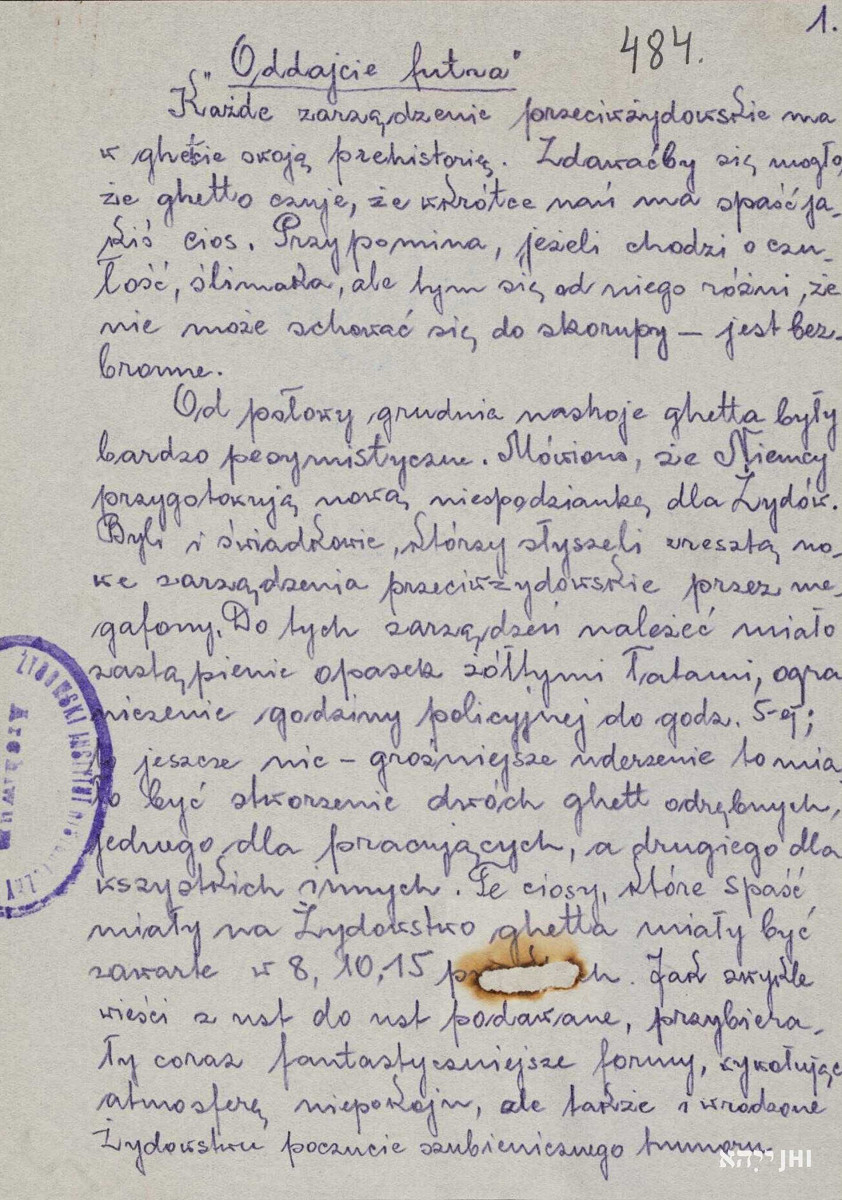 1.
484.
"Oddajcie futra"
Każde zarządzenie przeciwżydowskie ma
w ghetcie swoją prehistorię. Zdawaćby się mogło,
że ghetto czuje, że wkrótce nań ma spaść ja-
kiś cios. Przypomina, jeżeli chodzi o czu-
łość, ślimaka, ale tym się od niego różni, że
nie może schować się do skorupy — jest bez-
bronne.
Od połowy grudnia nastroje ghetta były
bardzo pesymistyczne. Mówiono, że Niemcy
przygotowują nową niespodziankę dla Żydów.
Byli i świadkowie, którzy słyszeli zresztą no-
we zarządzenia przeciwżydowskie przez me-
gafony. Do tych zarządzeń należeć miało
zastąpienie opasek żółtymi łatami, ogra
niczenie godziny policyjnej do godz. 5-ej;
to jeszcze nic – groźniejsze uderzenie to mia
ło być stworzenie dwóch ghett odrębnych,
jednego dla pracujących, a drugiego dla
wszystkich innych. Te ciosy, które spaść
miały na Żydowstwo ghetta miały być
zawarte w 8, 10, 15 Jak zwykle
wieści z ust do ust podawane, przybiera-
ły coraz fantastyczniejsze formy, wywołując
atmosferę niepokoju, ale także i wrodzone
Żydowstwu poczucie szubienicznego humoru.
ŻYDOWSKI INSTYTUT
Archiwum
JHI